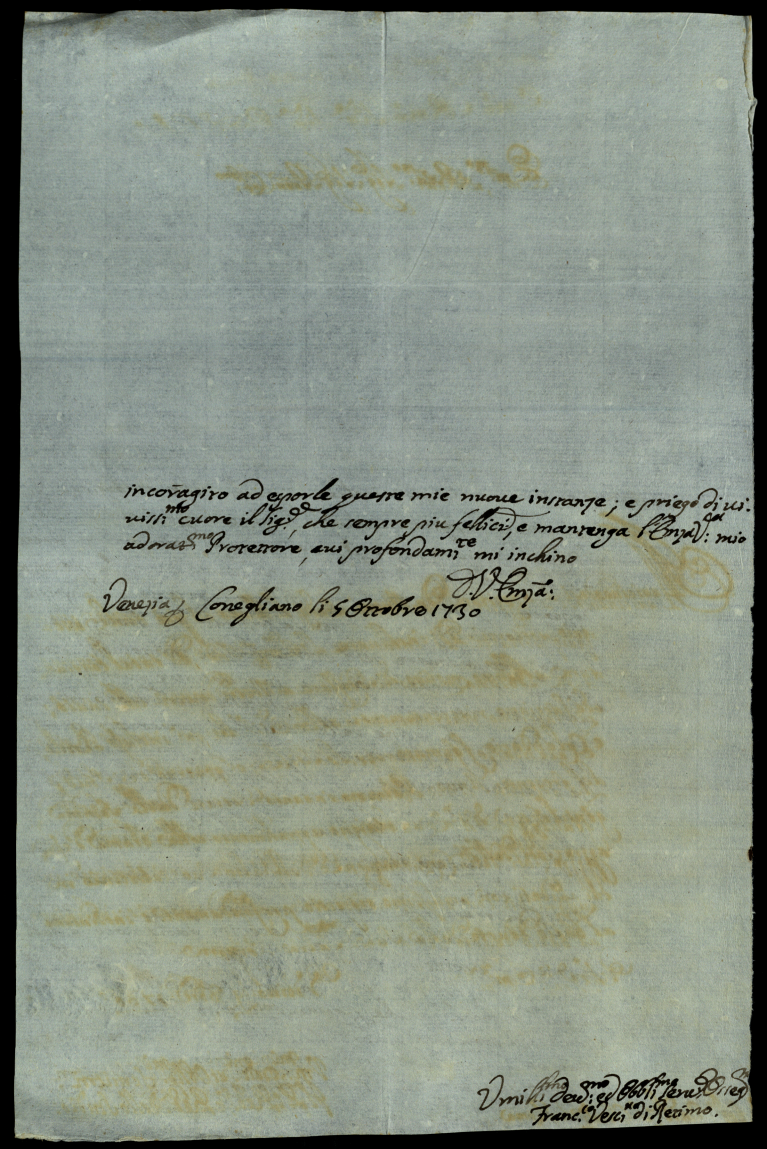 incoragiro ad esporle queste mie nuove instanze; e priego di vi-
vissi^mo cuore il Sig:^re, che sempre piu fellici, e mantenga l'Em̃za V:^ra mio
adorat^mo Protettore, cui profondam^te mi inchino
D. V. Em̃za:
Venezia p Conegliano li 5 Ottobre 1730
Umiliss^mo Dev:^mo ed Obbli^mo Serv:^e Osseq^mo
Franc:^co Vesc:^vo di Retimo.